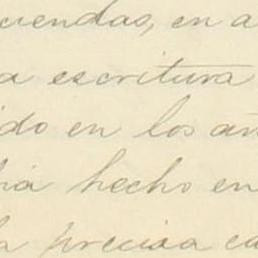 ciendas, en a
a escritura
ido en los añ
hecho en
la precisa ca